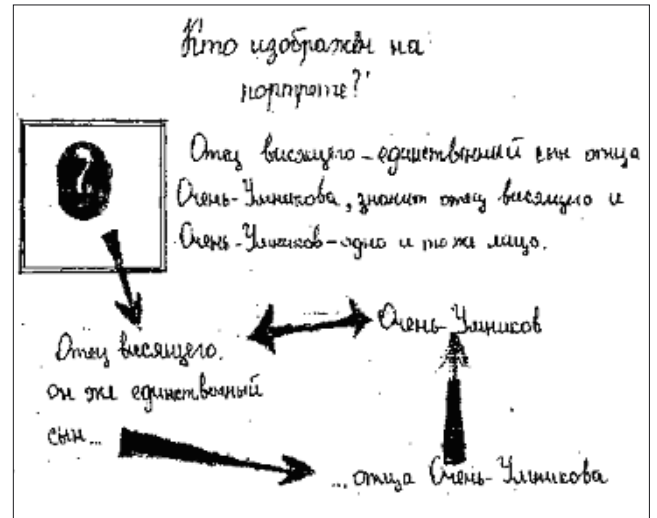 Кто изображён на
портрете?
?
Отец висящего - единственный сын отца
Очень-Умникова, значит отец висящего и
Очень-Умников - одно и то же лицо.
Очень-Умников
Отец висящего.
он же единственный
сын...
... отца Очень-Умникова